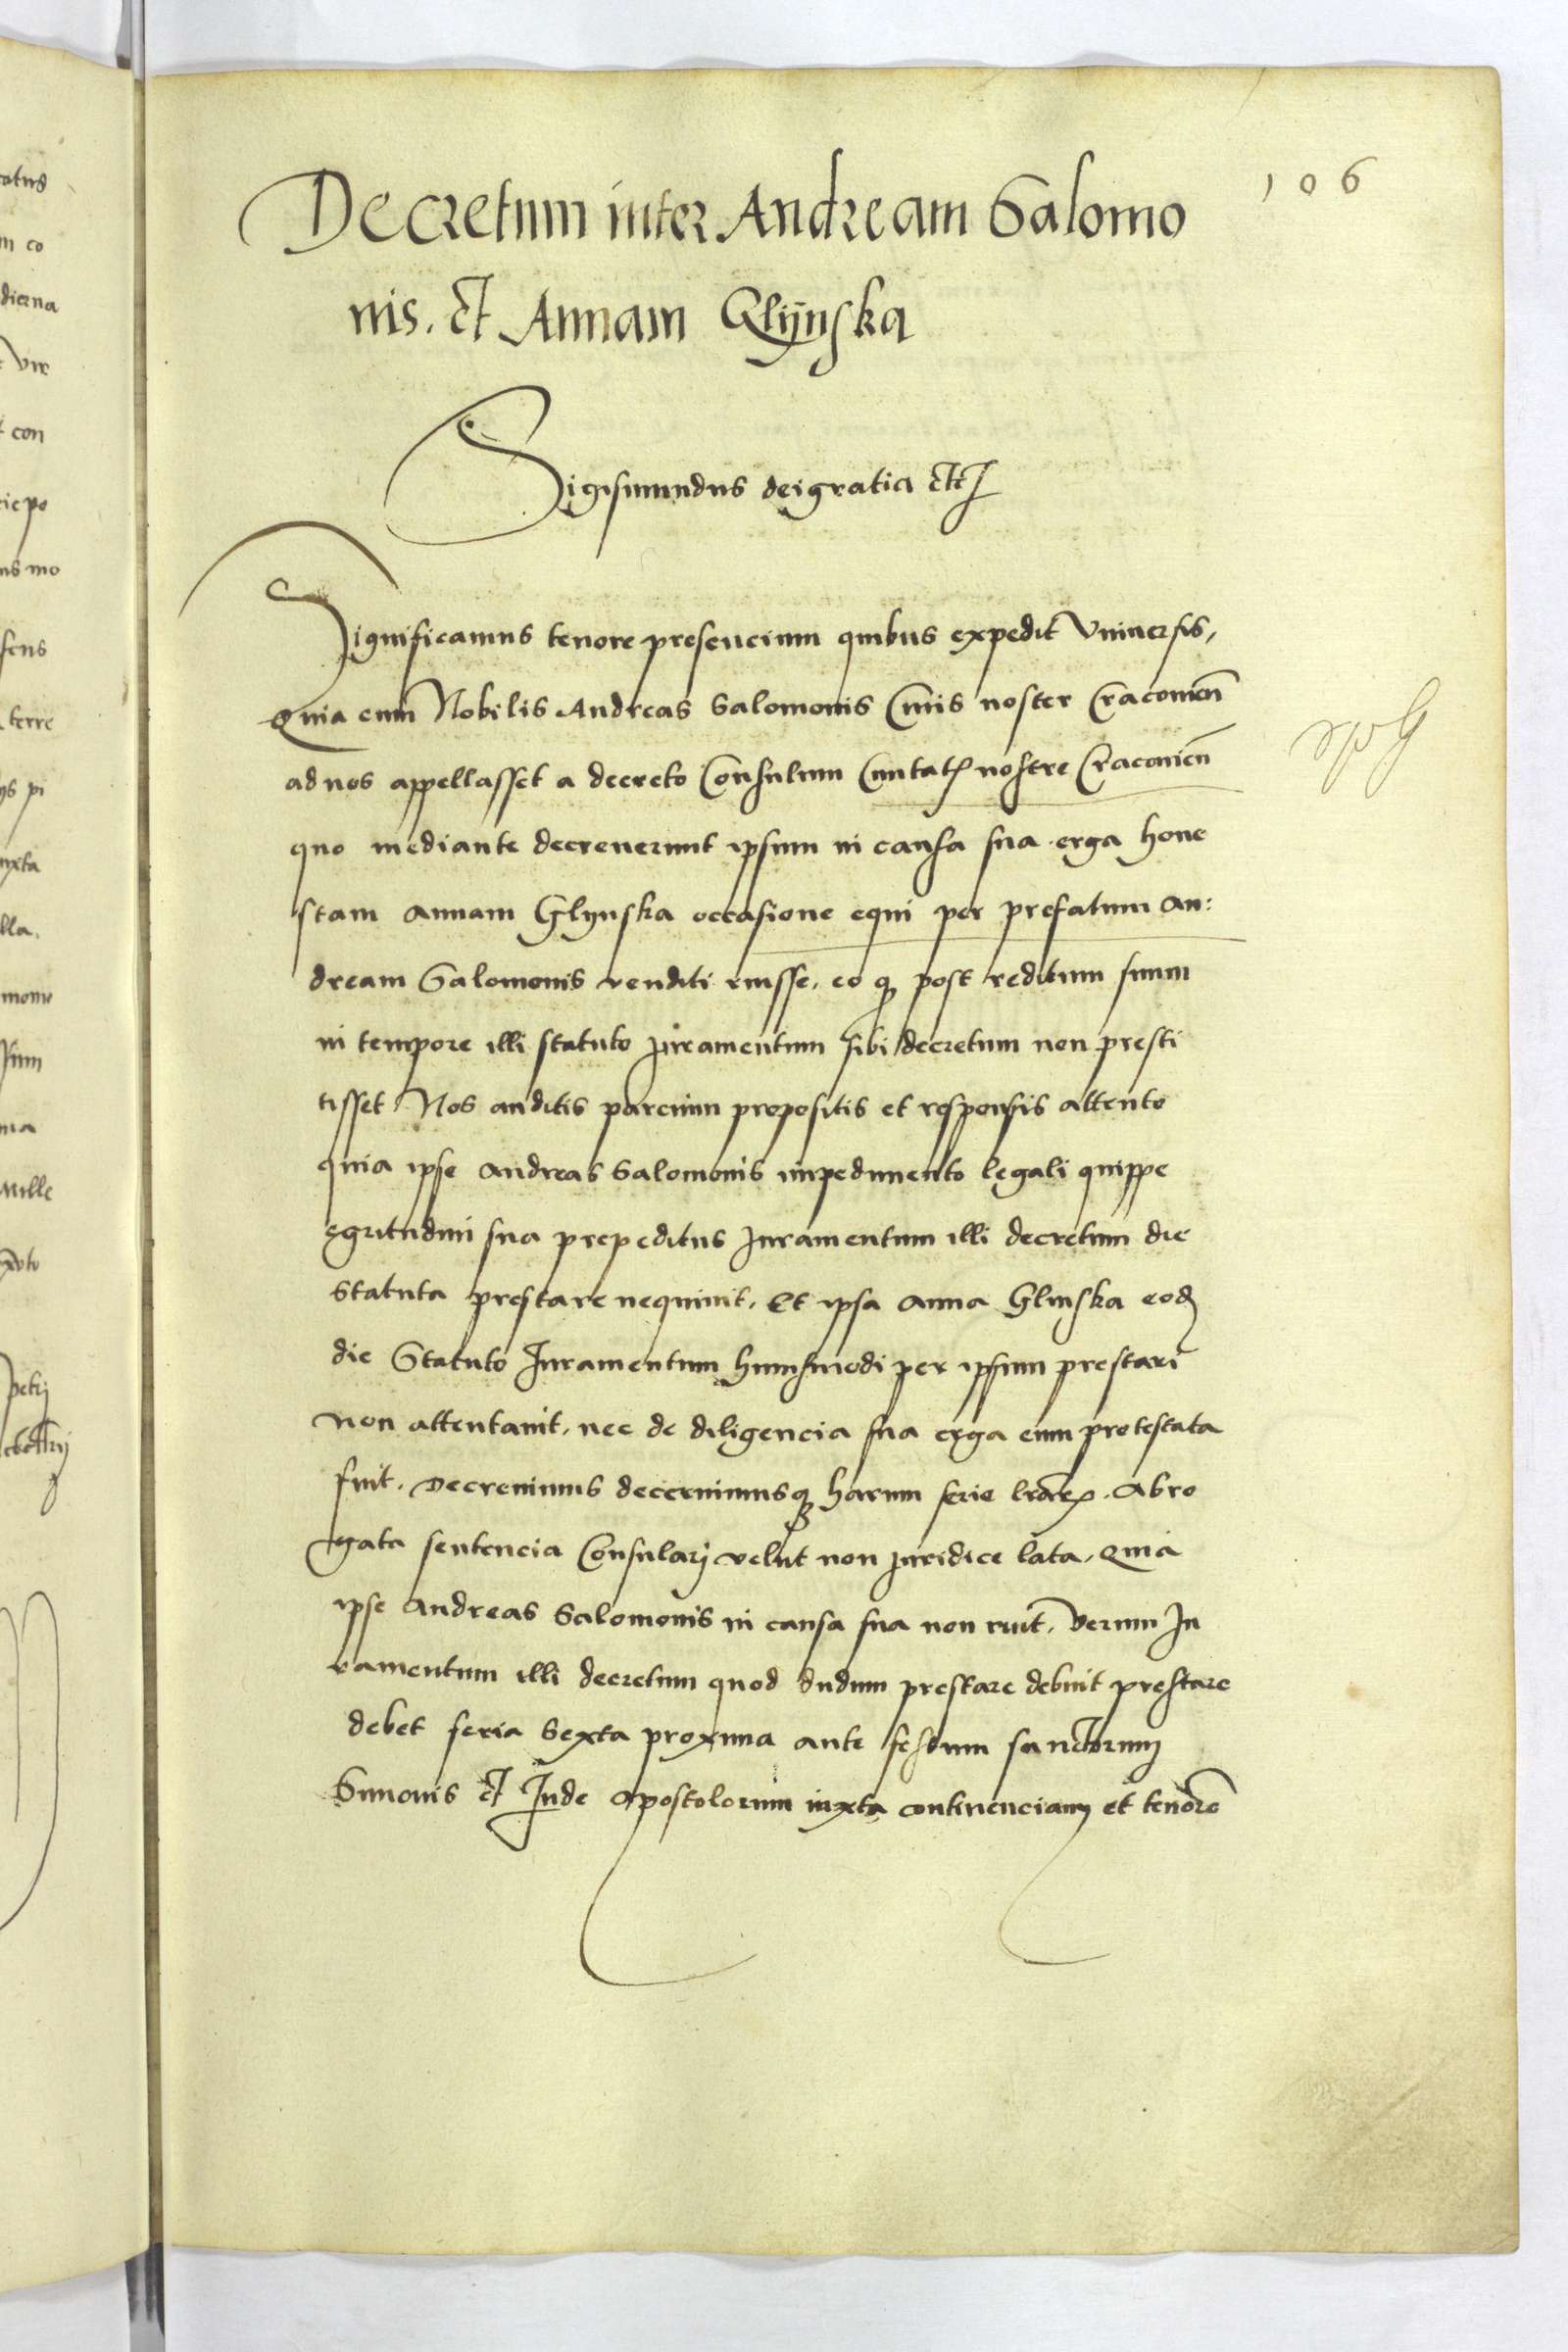 106
Decretum inter Andream Salomo
nis. et Annam Glÿnska
Sigismundus dei gratia etc
Significamus tenore presencium quibus expedit Vniuersis,
Quia cum Nobilis Andreas Salomonis Ciuis noster Cracouien
ad nos appellasset a decreto Consulum Ciuitatis nostre Cracouien
quo mediante decreuerunt ipsum in causa sua erga hone
stam Annam Glynska occasione equi per prefatum An:
dream Salomonis venditi ruisse, eo q post reditum suum
in tempore illi statuto iuramentum sibi decretum non presti
tisset Nos auditis parcium propositis et responsis attento
quia ipse Andreas Salomonis impedimento legali quippe
egritudini sua prepeditus Iuramentum illi decretum die
Statuta prestare nequiuit. Et ipsa Anna Glinska eod
die Statuto Iuramentum huiusmodi per ipsum prestari
non attentauit, nec de diligencia sua erga eum protestata
fuit. Decreuimus decernimusq harum serie lrarum. Abro
gata sentencia Consularj velut non juridice lata, Quia
ipse Andreas Salomonis in causa sua non ruit, Verum Iu
ramentum illi decretum quod dudum prestare debuit prestare
debet feria Sexta proxima ante festum sanctorum
Simonis et Iude Apostolorum iuxta continenciam et tenore